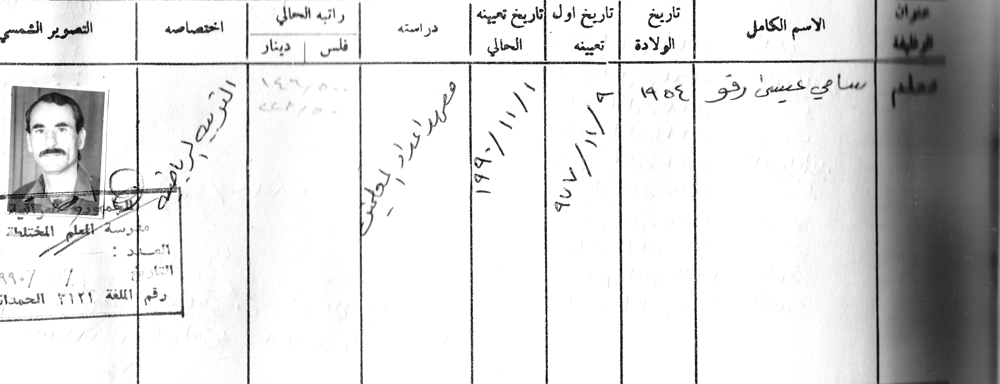 عنوان الوظيفة
الاسم الكامل
تاريخ الولادة
تاريخ اول تعيينه
تاريخ تعيينه الحالي
دراسته
راتبه الحالي
فلس | دينار
اختصاصه
التصوير الشمسي
معلم
سامي عيسى رفو
١٩٥٤
٩٧٧/١١/٩
١٩٩٠/١١/١
معهد اعداد المعلمين
١٤٦/٥٠٠
التربية الرياضية
الجمهورية العراقية
مدرسة المعلم المختلطة
العدد :
التاريخ / / ٩٩٠
رقم الملغة ٣١٢١